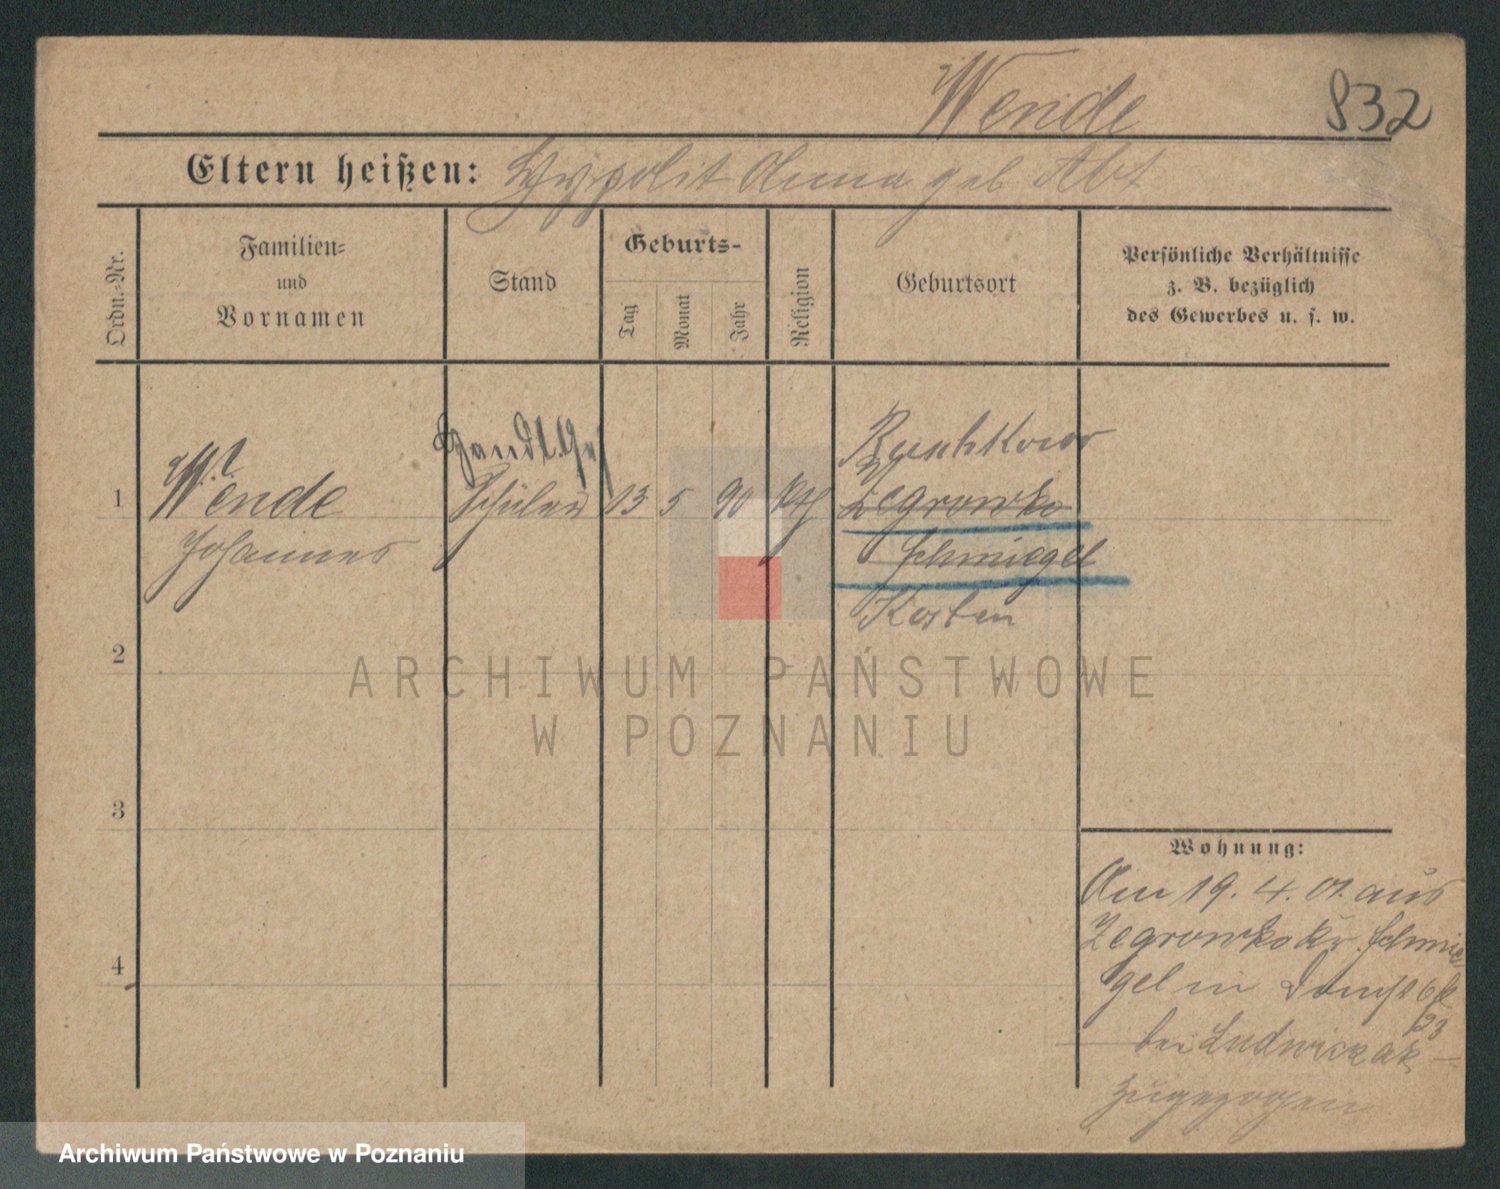 Wende
832
Eltern heißen: Hypolit Anna geb Abt
Ordn.-Nr.
Familien-
und
Vornamen
Stand
Geburts-
Tag
Monat
Jahr
Religion
Geburtsort
Persönliche Verhältnisse
z. B. bezüglich
des Gewerbes u. s. w.
Handl.
1
Wende
Johannes
Schüler
13
5
90
kth
Zegrowko
Schmiegel
Kosten
2
3
4
Wohnung:
Am 19. 4. 01. aus
Zegrowko Kr. Schmie
gel in
23
bei Ludwiczak
zugezogen
ARCHIWUM PAŃSTWOWE
W POZNANIU
Archiwum Państwowe w Poznaniu